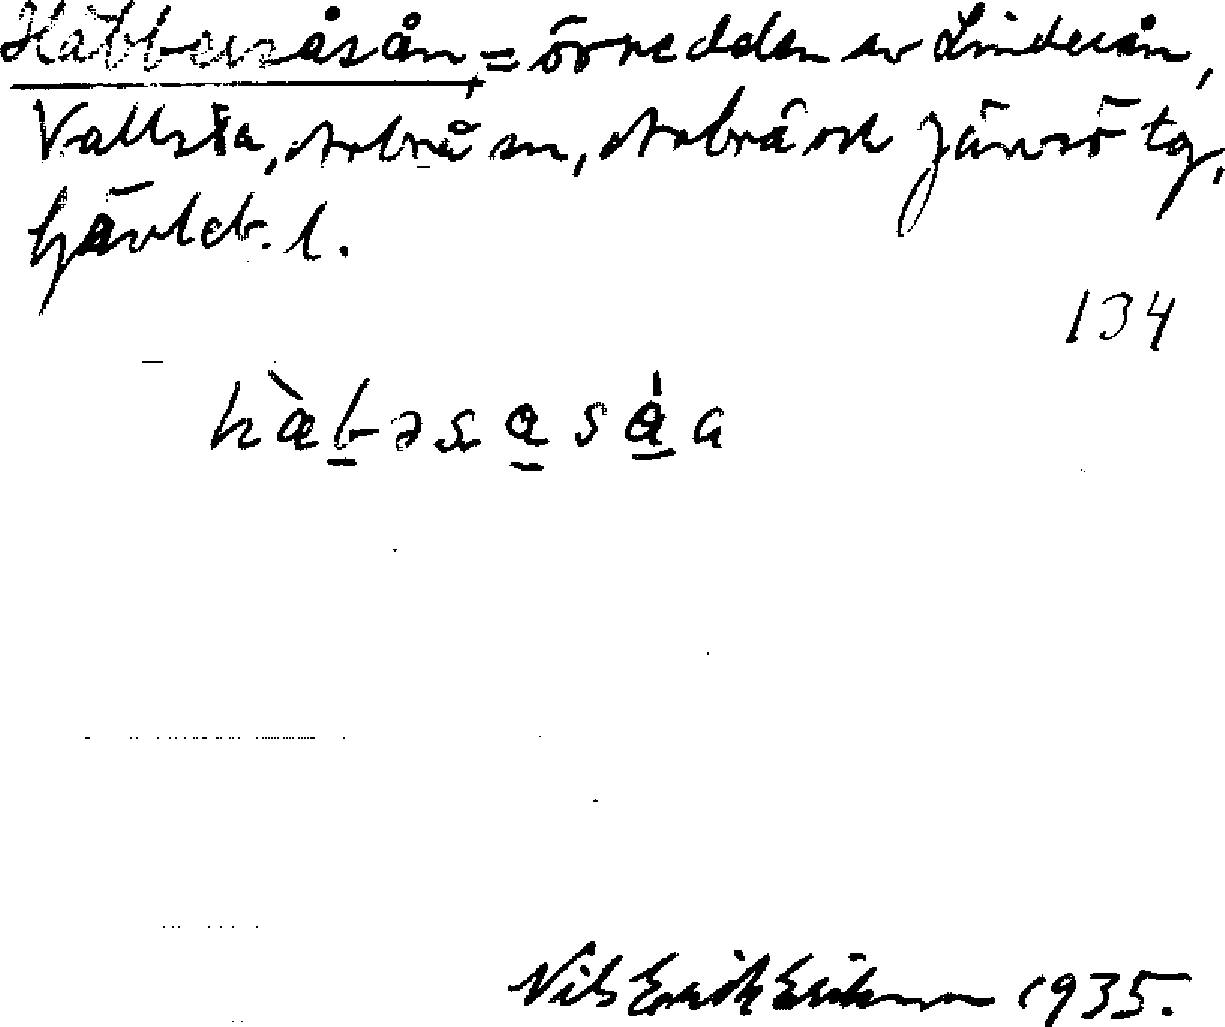 Häbbersåsån, = övre delen av Linderån,
Vallsta, Arbrå sn, Arbrå och Järvsö tg,
Gävleb. l.
134
hæ̀bəsa̱sá̱a
Nils Erik Eriksson 1935.